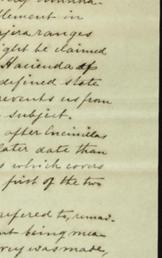 lement in
ranges
ight be claimed
Hacienda of
defined state
revents us from
subject.
after Encinillas
later date than
s which covers
first of the two
referred to,
nt being mea-
vey was made,